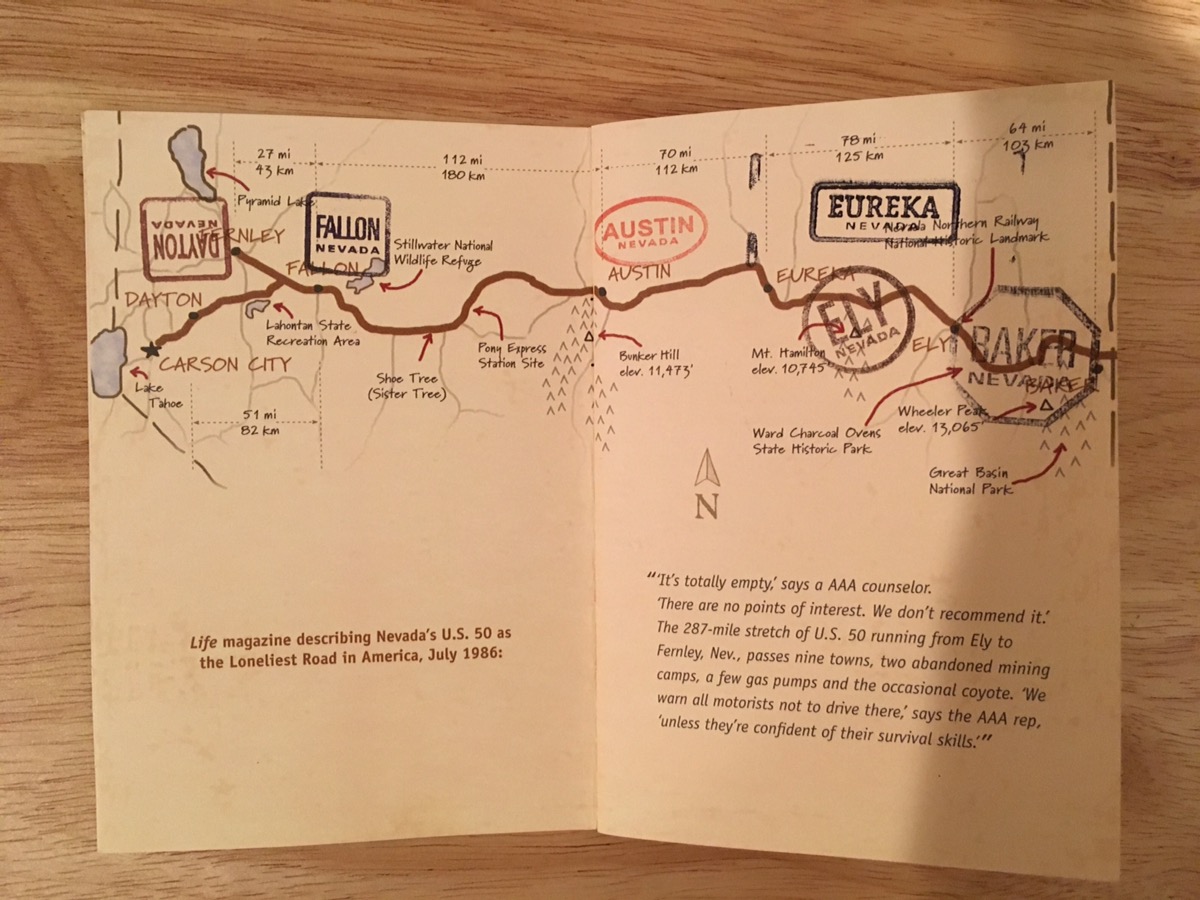 27 mi
43 km
112 mi
180 km
70 mi
112 km
78 mi
125 km
64 mi
103 km
Pyramid Lake
DAYTON
NEVADA
FERNLEY
FALLON
NEVADA
FALLON
Stillwater National
Wildlife Refuge
AUSTIN
NEVADA
AUSTIN
EUREKA
NEVADA
Nevada Northern Railway
National Historic Landmark
EUREKA
DAYTON
Lahontan State
Recreation Area
CARSON CITY
Lake
Tahoe
Shoe Tree
(Sister Tree)
Pony Express
Station Site
Bunker Hill
elev. 11,473'
Mt. Hamilton
elev. 10,745'
ELY
NEVADA
ELY
BAKER
NEVADA
BAKER
51 mi
82 km
Ward Charcoal Ovens
State Historic Park
Wheeler Peak
elev. 13,065'
Great Basin
National Park
N
Life magazine describing Nevada's U.S. 50 as
the Loneliest Road in America, July 1986:
"'It's totally empty,' says a AAA counselor.
'There are no points of interest. We don't recommend it.'
The 287-mile stretch of U.S. 50 running from Ely to
Fernley, Nev., passes nine towns, two abandoned mining
camps, a few gas pumps and the occasional coyote. 'We
warn all motorists not to drive there,' says the AAA rep,
'unless they're confident of their survival skills.'"